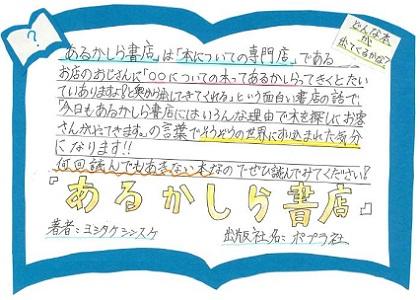 ?
どんな本
が
出てくるかな?
「あるかしら書店」は「本についての専門店」である
お店のおじさんに「○○についての本ってあるかしら?ときくとたい
ていありますよ!と奥から出してきてくれる」という面白い書店の話で
「今日もあるかしら書店にはいろんな理由で本を探しにお客
さんがやってきます。」の言葉でそうぞうの世界にすいこまれた気分
になります!!
何回読んでもあきない本なのでぜひ読んでみてください!
『あるかしら書店』
著者:ヨシタケシンスケ
出版社名:ポプラ社